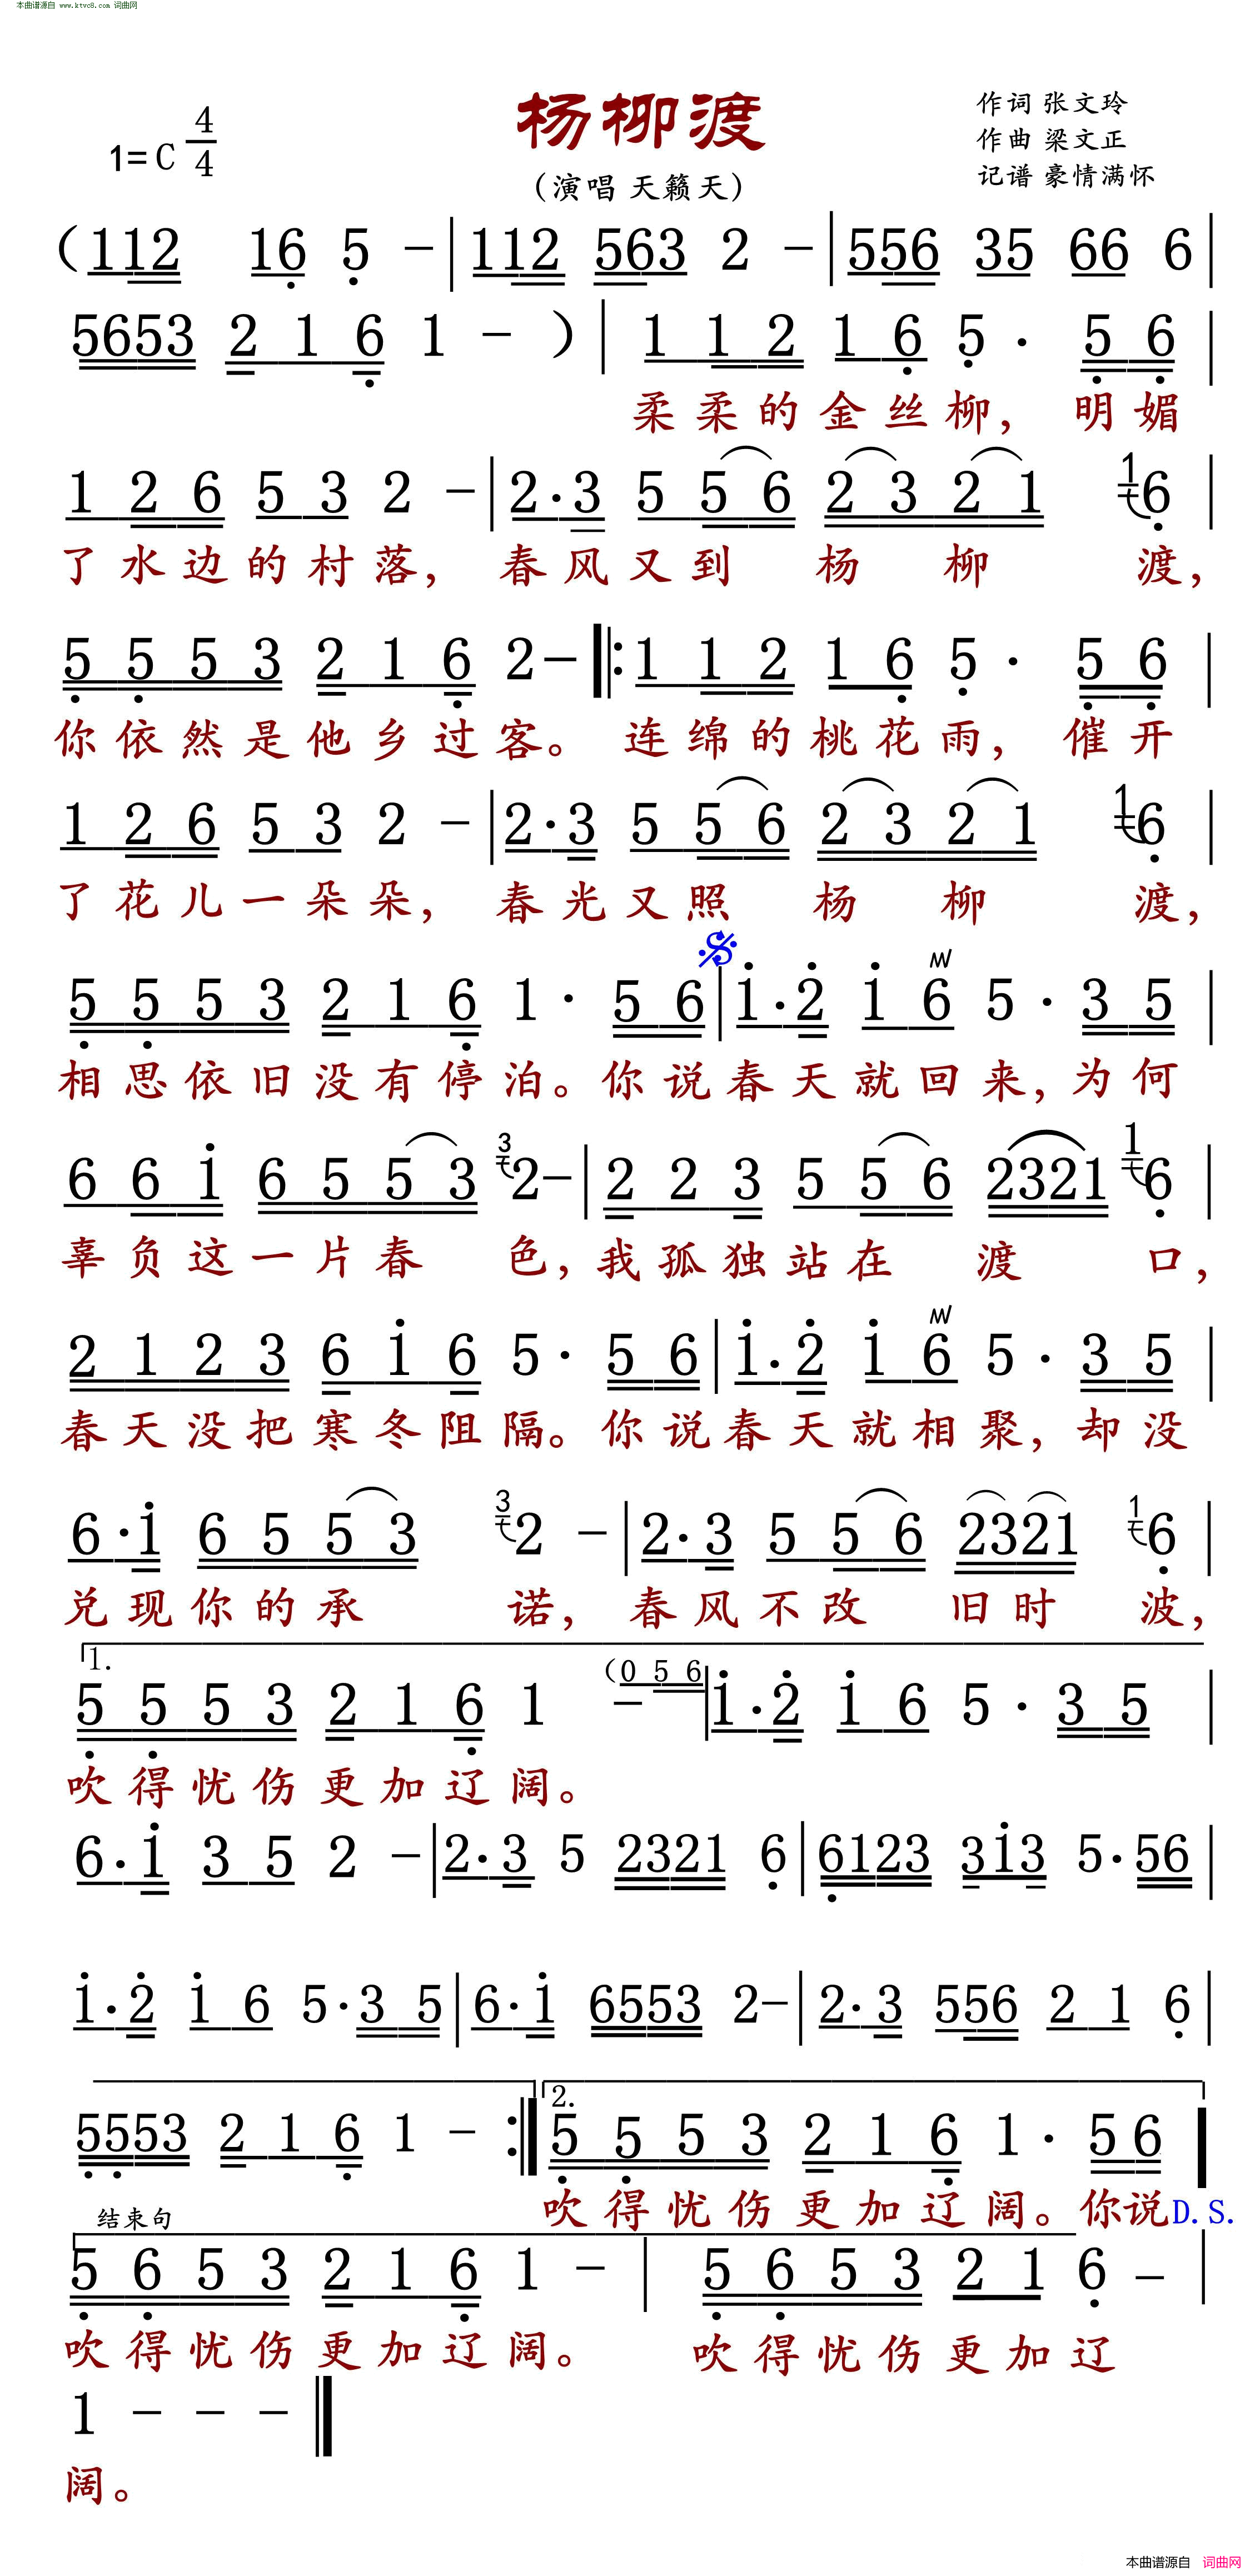 本曲谱源自 www.ktvc8.com 词曲网
杨柳渡
作词 张文玲
作曲 梁文正
记谱 豪情满怀
1=C 4/4
（演唱 天籁天）
（112 16 5 － | 112 563 2 － | 556 35 66 6 |
5653 2 1 6 1 － ） | 1 1 2 1 6 5 · 5 6 |
柔柔的金丝柳，明媚
1 2 6 5 3 2 － | 2·3 5 5 6 2 3 2 1 1 6 |
了水边的村落，春风又到杨柳渡，
5 5 5 3 2 1 6 2－ |: 1 1 2 1 6 5 · 5 6 |
你依然是他乡过客。连绵的桃花雨，催开
1 2 6 5 3 2 － | 2·3 5 5 6 2 3 2 1 1 6 |
了花儿一朵朵，春光又照杨柳渡，
5 5 5 3 2 1 6 1 · 5 6 | 1·2 1 6 5 · 3 5 |
相思依旧没有停泊。你说春天就回来，为何
6 6 1 6 5 5 3 3 2－ | 2 2 3 5 5 6 2321 1 6 |
辜负这一片春色，我孤独站在渡口，
2 1 2 3 6 1 6 5 · 5 6 | 1·2 1 6 5 · 3 5 |
春天没把寒冬阻隔。你说春天就相聚，却没
6·1 6 5 5 3 3 2 － | 2·3 5 5 6 2321 1 6 |
兑现你的承诺，春风不改旧时波，
1.
5 5 5 3 2 1 6 1 － （0 5 6 | 1·2 1 6 5 · 3 5 |
吹得忧伤更加辽阔。
6·1 3 5 2 － | 2·3 5 2321 6 | 6123 313 5·56 |
1·2 1 6 5·3 5 | 6·1 6553 2－ | 2·3 556 2 1 6 |
5553 2 1 6 1 － :| 2. 5 5 5 3 2 1 6 1 · 5 6 |
吹得忧伤更加辽阔。你说D.S.
结束句
5 6 5 3 2 1 6 1 － | 5 6 5 3 2 1 6 － |
吹得忧伤更加辽阔。吹得忧伤更加辽
1 － － － ‖
阔。
本曲谱源自 词曲网